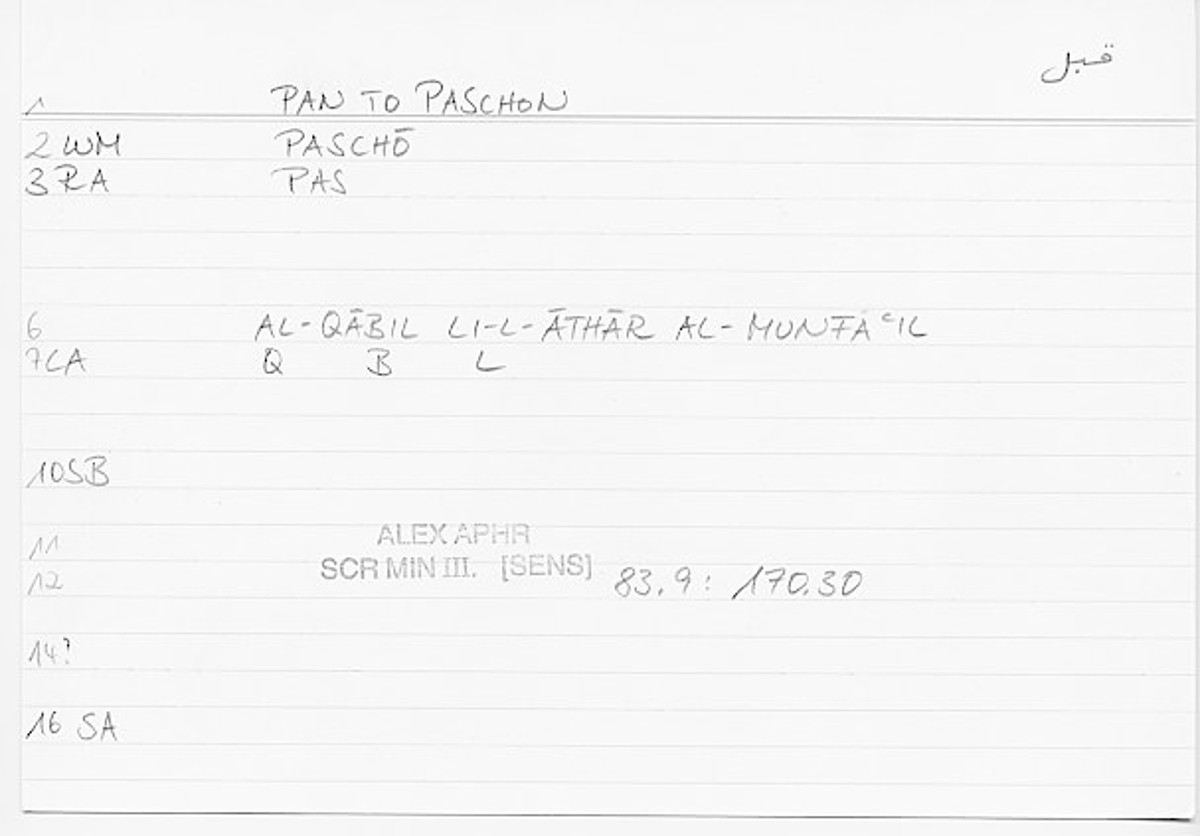 قبل
1 PAN TO PASCHON
2 WM PASCHŌ
3 RA PAS
6 AL-QĀBIL LI-L-ĀTHĀR AL-MUNFAʿIL
7 CA Q B L
10 SB
11 ALEX APHR
SCR MIN III. [SENS]
12 83.9: 170.30
14?
16 SA